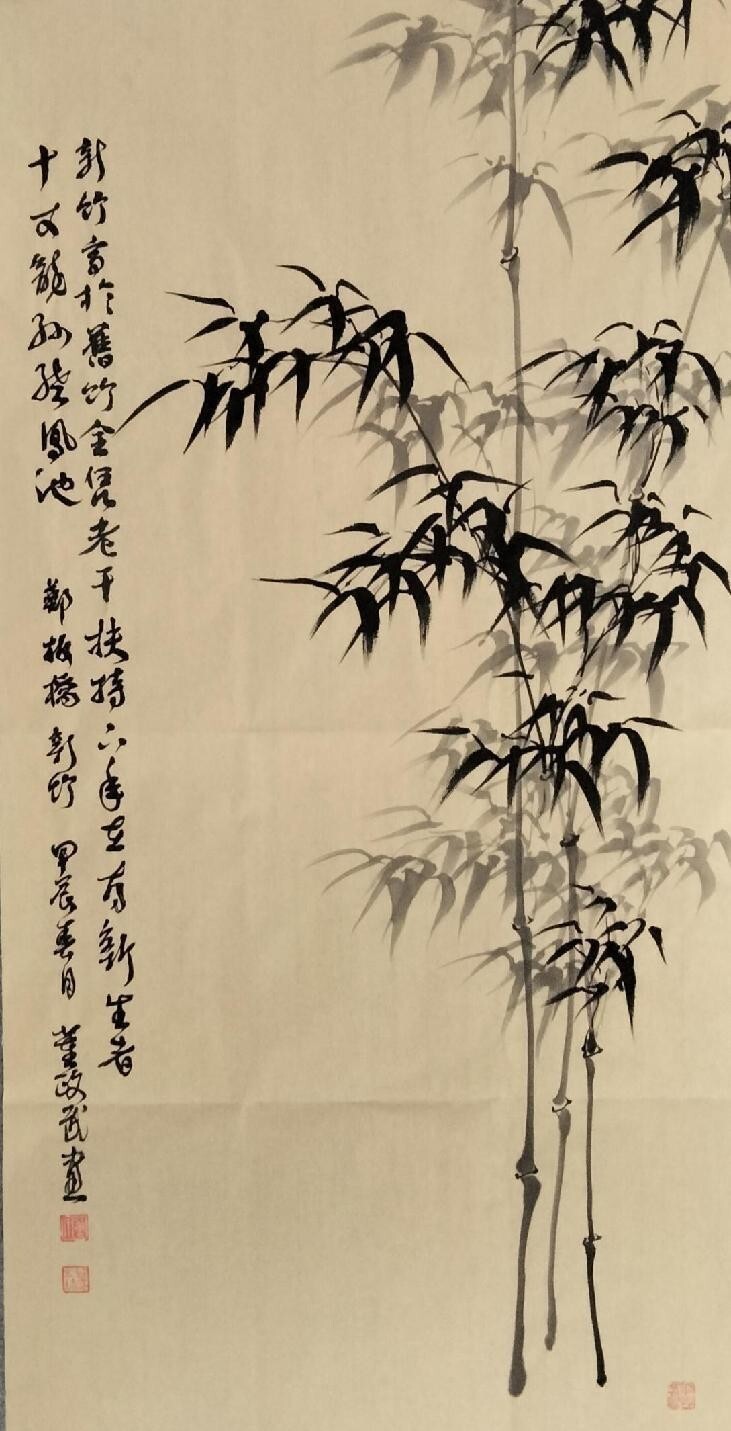 新竹高於舊竹全凭老干扶持下年在有新生者
十丈龍孫繞鳳池 鄭板橋新竹 甲辰春月 董政武畫